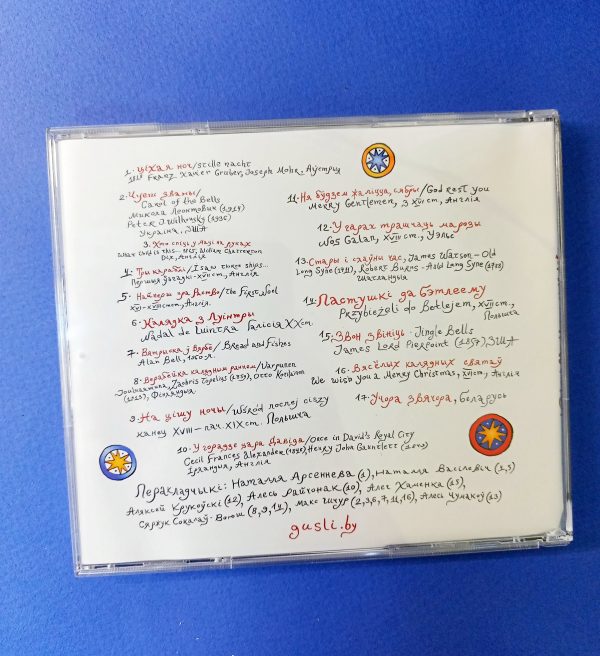 1. Ціхая ноч/Stille nacht
1818 Franz Xaver Gruber, Joseph Mohr, Аўстрыя
2. Чуеш званы/
Carol of the Bells
Микола Леонтович (1914)
Peter J Wilhousky (1936)
Украіна, ЗША
3. Хто спіць у Мазі на руках
What Child is this... 1865, William Chatterton
Dix, Англія
4. Тры караблі/I saw three ships...
Першыя ўзгадкі - XVII ст., Англія
5. Найперш пра Раство/The First Noel
Англія
6. Калядка з Луінтры
Nadal de Luintra Галісія XX ст.
7. Вандроўка ў / Bread and Fishes
Alan Bell, 1960-я.
8. Варабейка калядным ранкам/Varpunen
Jouluaamuna, Zachris Topelius (1859), Otto Kotilainen
(1913), Фінляндыя
9. На цішу ночы/Wśród nocnej ciszy
канец XVIII - пач. XIX ст. Польшча
10. У горадзе цара Давіда/Once in David's Royal City
Cecil Frances Alexander (1848), Henry John Gauntlett (1849)
Ірландыя, Англія
11. На будзем жаліцца, сябры/God rest you
Merry Gentlemen, з XVI ст., Англія
12. У гарах трашчаць марозы
Nos Galan, XVIII ст., Уэльс
13. Стары і слаўны час, James Watson - Old
Long Syne (1711), Robert Burns - Auld Lang Syne (1788)
Шатландыя
14. Пастушкі да Бэтлеему
Przybieżeli do Betlejem, XVII ст.,
Польшча
15. Звон звініць - Jingle Bells
James Lord Pierpoint (1857), ЗША
16. Вясёлых калядных святаў
We wish you a Merry Christmas, XVI ст., Англія
17. Учора звячора, Беларусь
Перакладчыкі: Наталля Арсеннева (1), Наталля Васілевіч (2,5)
Аляксей Крукоўскі (12), Алесь Райчонак (10), Алег Хаменка (15),
Сяржук Сокалаў-Воюш (8,9,14), Макс Шчур (2,3,6,7,11,16), Алесь Чумакоў (13)
gusli.by